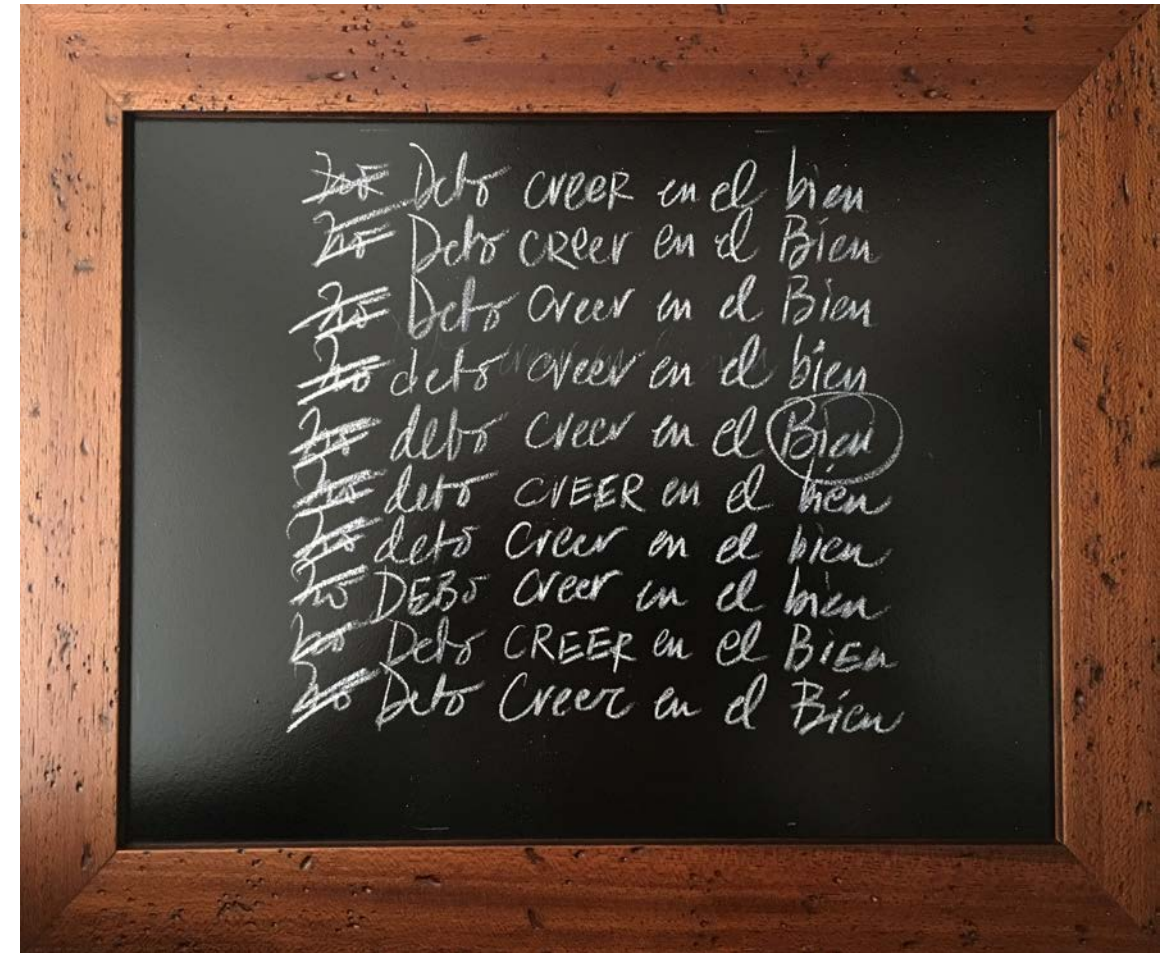 no Debo creer en el bien
no Debo creer en el Bien
no Debo creer en el Bien
no debo creer en el bien
no debo creer en el Bien
no debo crEER en el bien
no debo creer en el bien
no DEBo creer en el bien
no Debo CREER en el BiEn
no Debo Creer en el Bien